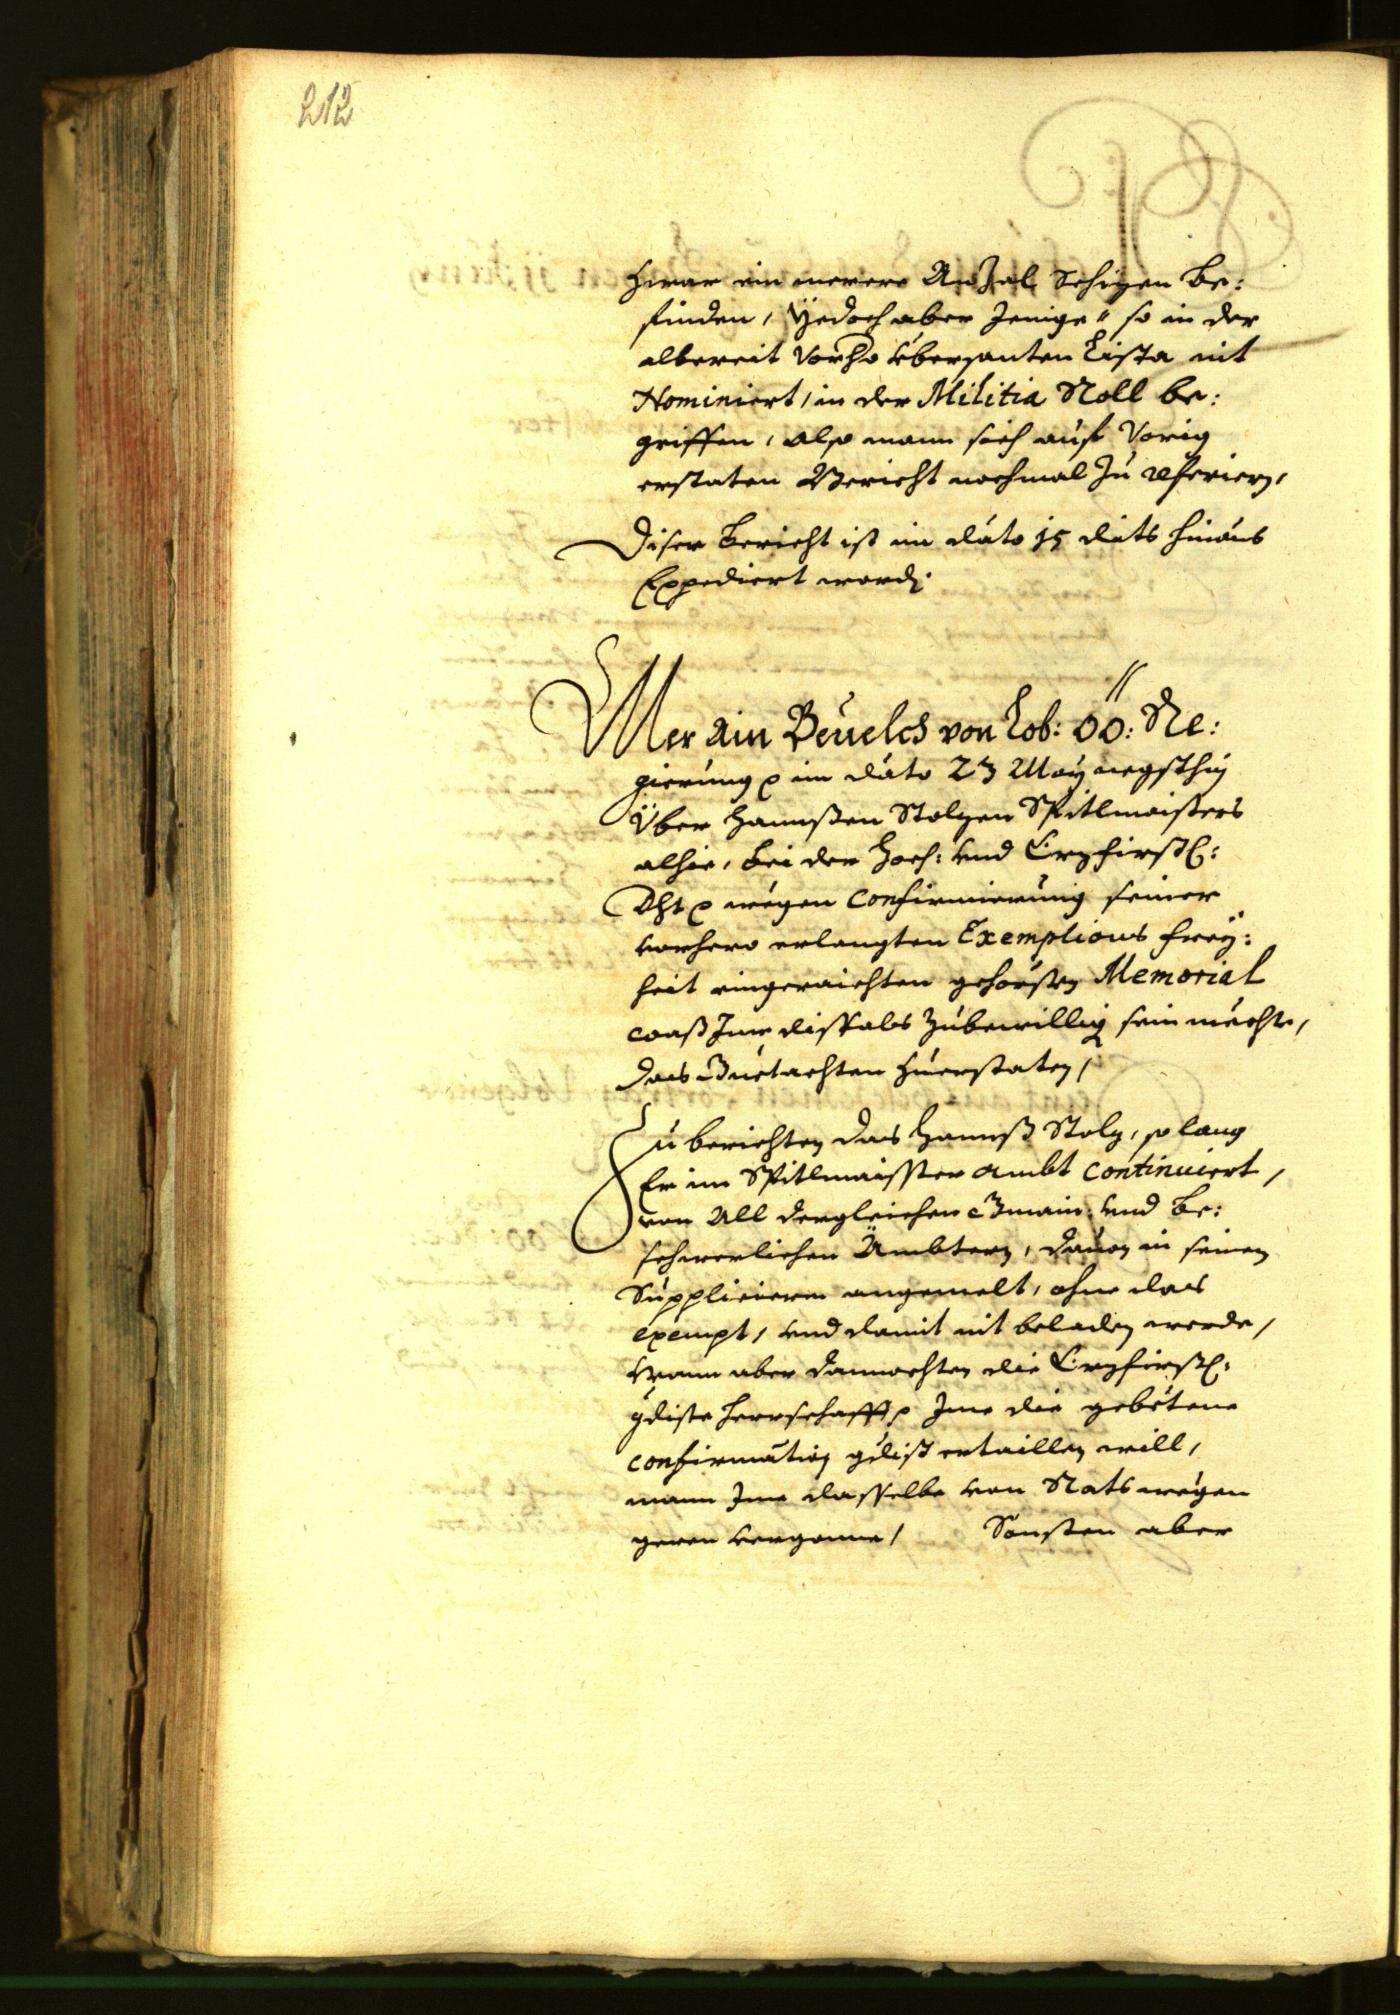 212
zwar ein merere Anzal Schizen be:
finden, Yedoch aber Jenige so in der
albereit vorho übersanten Lista nit
Nominiert, in der Militia Roll be:
griffen, also mann sich auf vorig
erstaten Bericht nochmal zu referiern,
Diser Bericht ist im dato 15 dits hinaus
Expediert word.
Über ain Beuelch von Lob: OÖ: Re:
gierung im dato 23 May negsthin
Über Hannßen Stolzen Spitlmaisters
alhie, bei der Hoch: und Erzfirstl:
Dht wegen Confirmierung seiner
vorhero erlangten Exemptions frey:
heit eingeraichten gehorsten Memorial
waß Ime dissfals zubewillig sein mechte,
das Guetachten zuerstaten,
Zu berichten das Hannß Stolz, so lang
Er im Spitlmaisster Ambt Continuiert,
von All dergleichen Gmain: und be:
schwerlichen Ämbtern, dauon in seinen
Supplicieren angemelt, ohne das
exempt, und damit nit beladen werde,
Wann aber dannochten die Erzfirstl:
gdiste Herrschafft Ime die gebetene
confirmation gdist ertaillen will,
mann Ime dasselbe von Rats wegen
geren vergonne, Sonsten aber